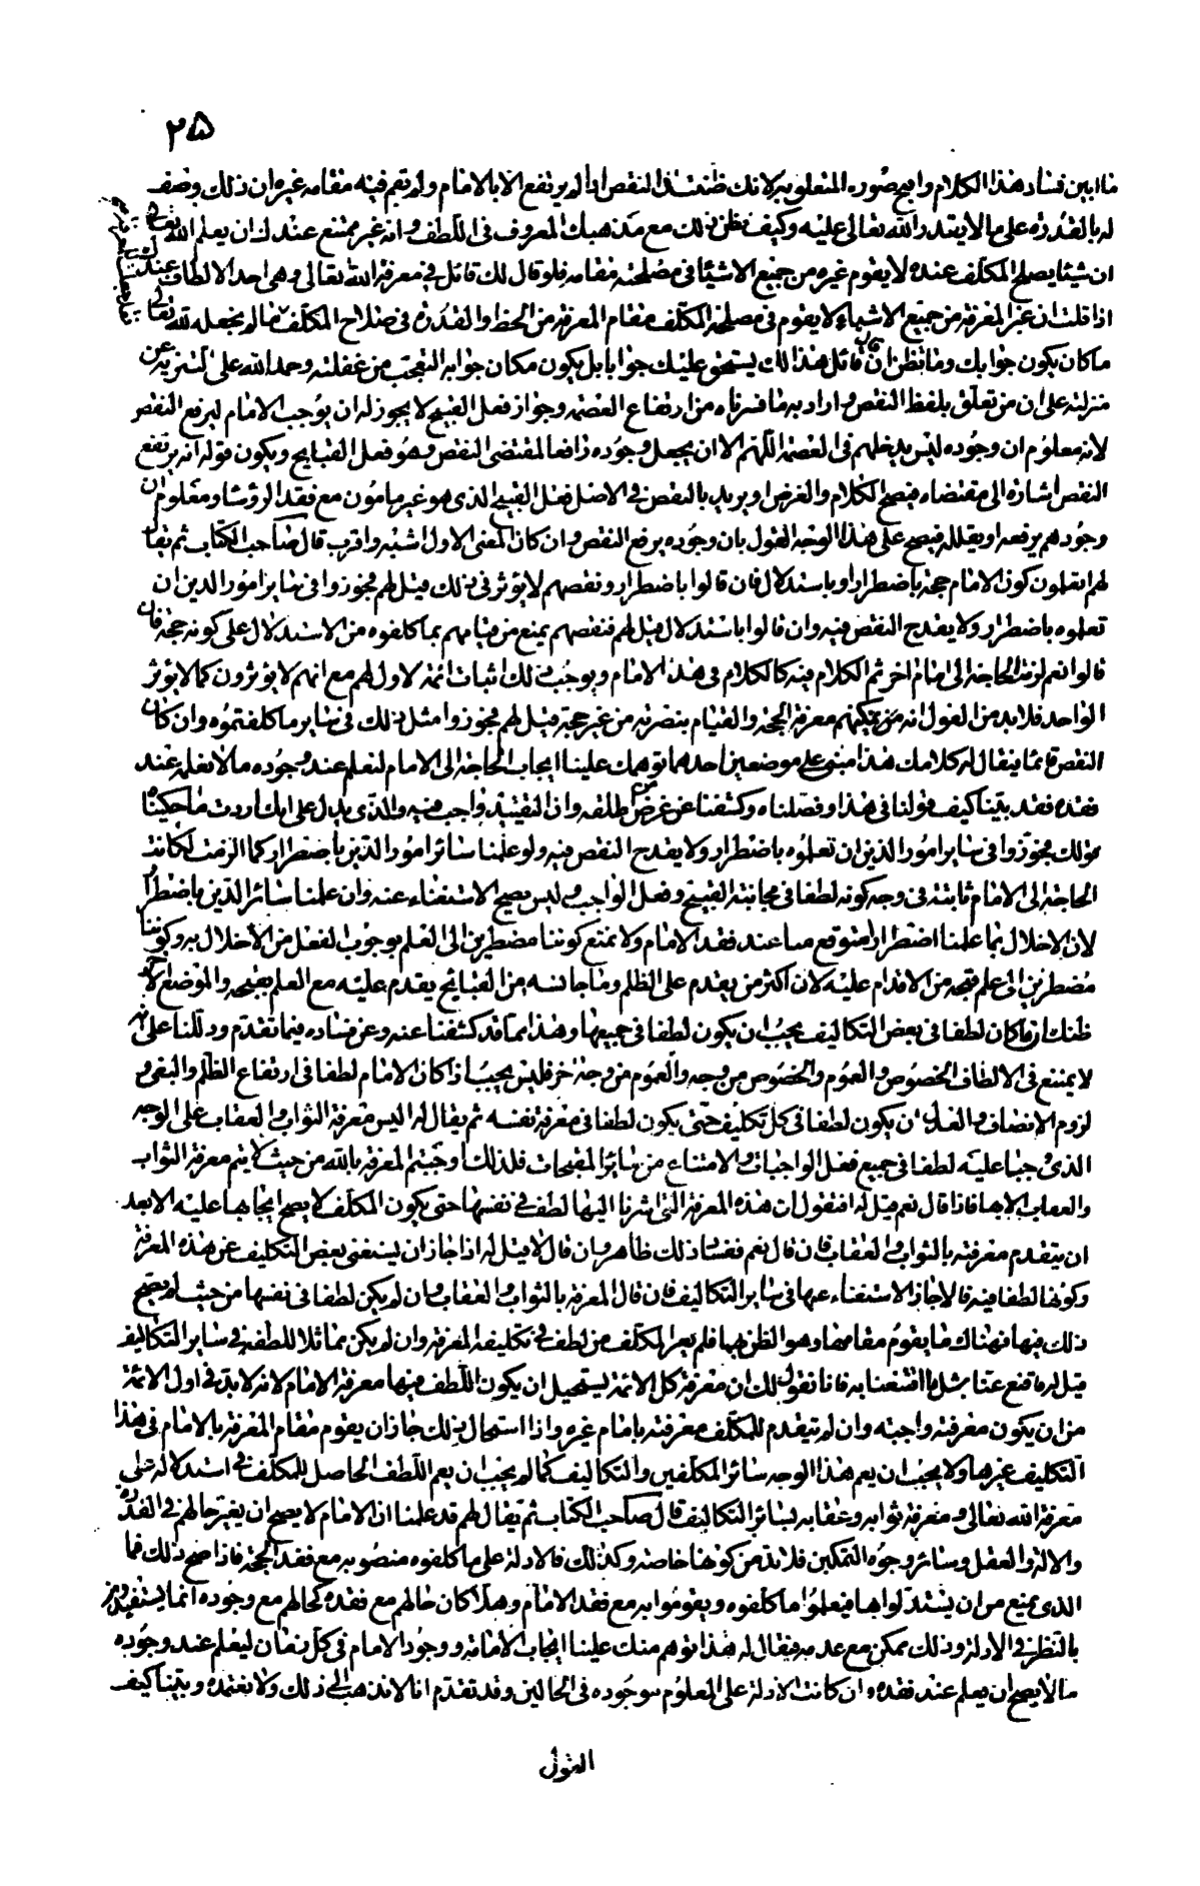 ٢٥
ما ابين فساد هذا الكلام واقبح صورة المتعلق به لانك ظننت ان النقص اذا لم يرتفع الا بالامام ولم يقم فيه مقامه غيره ان ذلك وصف
له بالقدرة على ما لا يقدر الله تعالى عليه وكيف تظن ذلك مع مذهبك المعروف فى اللطف وانه غير ممتنع عندك ان يعلم الله تعالى
ان شيئا يصلح المكلف عنده لا يقوم غيره من جميع الاشياء فى مصلحته مقامه فلو قال لك قائل فى معرفة الله تعالى وهى احد الالطاف عندك
اذا قلت ان غير المعرفة من جميع الاشياء لا يقوم فى مصلحة المكلف مقام المعرفة من الحظ والقدرة فى صلاح المكلف ما لم يجعله لله تعالى
ما كان يكون جوابك وما نظن ان قائل هذا لك يستحق عليك جوابا بل يكون مكان جوابه التعجب من غفلته وحمد الله على التنزيه عن
منزلته على ان من تعلق بلفظ النقص واراد به ما فسرناه من ارتفاع العصمة وجواز فعل القبيح لا يجوز له ان يوجب الامام ليرفع النقص
لانه معلوم ان وجوده ليس يدخلهم فى العصمة اللهم الا ان يجعل وجوده رافعا لمقتضى النقص وهو فعل القبايح ويكون قوله انه يرتفع
النقص اشارة الى مقتضاه فيصح الكلام والغرض او يريد بالنقص فى الاصل فعل القبيح الذى هو غير مامون مع فقد الرؤسا ومعلوم ان
وجودهم يرفعه او يقلله فيصح على هذا الوجه القول بان وجوده يرفع النقص وان كان المعنى الاول اشبه واقرب قال صاحب الكتاب ثم يقال
لهم اتعلمون كون الامام حجة باضطرار او باستدلال فان قالوا باضطرار ونقصهم لا يؤثر فى ذلك قيل لهم فجوزوا فى ساير امور الدين ان
تعلموه باضطرار ولا يقدح النقص فيه وان قالوا باستدلال قيل لهم فنقصهم يمنع من قيامهم بما كلفوه من الاستدلال على كونه حجة فان
قالوا نعم لزمت الحاجة الى امام اخر ثم الكلام فيه كالكلام فى هذا الامام ويوجب ذلك اثبات ائمة لا اول لهم مع انهم لا يؤثرون كما لا يؤثر
الواحد فلا بد من القول انه يمكنهم معرفة الحجة والقيام بنصرته من غير حجة قيل لهم فجوزوا مثل ذلك فى ساير ما كلفتموه وان كان
النقص قائما فيقال له كلامك هذا مبنى على موضعين احدهما توهمك علينا ايجاب الحاجة الى الامام لنعلم عند وجوده ما لا نعلمه عند
فقده فقد بينا كيف قولنا فى هذا وفصلناه وكشفنا عن غرض من اطلقه وان التقييد واجب فيه والذى يدل على انك اردت ما حكيناه
قولك فجوزوا فى ساير امور الدين ان تعلموه باضطرار ولا يقدح النقص فيه ولو علمنا سائر امور الدين باضطرار كما الزمت لكانت
الحاجة الى الامام ثابتة فى وجه كونه لطفا فى مجانبة القبيح وفعل الواجب وليس يصح الاستغناء عنه وان علمنا سائر الدين باضطرار
لان الاخلال بما علمنا اضطرارا متوقع منا عند فقد الامام ولا يمنع كوننا مضطرين الى العلم بوجوب الفعل من الاخلال به وكوننا
مضطرين الى علم قبحه من الاقدام عليه لان اكثر من يقدم على الظلم وما جانسه من القبايح يقدم عليه مع العلم بقبحه والموضع الاخر
ظنك ان ما كان لطفا فى بعض التكاليف يجب ان يكون لطفا فى جميعها وهذا مما قد كشفنا عنه وعن فساده فيما تقدم ودللنا على انه
لا يمتنع فى الالطاف الخصوص والعموم والخصوص من وجه والعموم من وجه اخر فليس يجب اذا كان الامام لطفا فى ارتفاع الظلم والبغى و
لزوم الانصاف والعدل ان يكون لطفا فى كل تكليف حتى يكون لطفا فى معرفة نفسه ثم يقال له اليس معرفة الثواب والعقاب على الوجه
الذى وجبا عليه لطفا فى جميع فعل الواجبات والامتناع من ساير المقبحات فلذلك اوجبتم المعرفة بالله من حيث لا يتم معرفة الثواب
والعقاب الا بها فاذا قال نعم قيل له افتقول ان هذه المعرفة التى اشرنا اليها لطف فى نفسها حتى يكون المكلف لا يصح ايجابها عليه الا بعد
ان يتقدم معرفته بالثواب والعقاب فان قال نعم ففساد ذلك ظاهر وان قال لا قيل له اذا جاز ان يستغنى بعض التكليف عن هذه المعرفة
وكونها لطفا فيه فالا جاز الاستغناء عنها فى ساير التكاليف فان قال المعرفة بالثواب والعقاب وان لم يكن لطفا فى نفسها من حيث لم يصح
ذلك فيها فهناك ما يقوم مقامها وهو الظن بهما فلم يعر المكلف من لطف فى تكليفه المعرفة وان لم يكن مماثلا للطفه فى ساير التكاليف
قيل له فاقنع عنا بمثل ما اقنعنا به فانا نقول لك ان معرفة كل الائمة يستحيل ان يكون اللطف فيها معرفة الامام لانه لا بد فى اول الائمة
من ان يكون معرفته واجبة وان لم يتقدم للمكلف معرفته بامام غيره واذا استحال ذلك جاز ان يقوم مقام المعرفة بالامام فى هذا
التكليف غيرها ولا يجب ان يعم هذا الوجه سائر المكلفين والتكاليف كما لم يجب ان يعم اللطف الحاصل للمكلف فى استدلاله على
معرفة الله تعالى ومعرفة ثوابه وعقابه لسائر التكاليف قال صاحب الكتاب ثم يقال لهم قد علمنا ان الامام لا يصح ان يغير حالهم فى القدرة
والالة والعقل وسائر وجوه التمكين فلا بد من كونها خاصته وكذلك فالادلة على ما كلفوه منصوبة مع فقد الحجة فاذا صح ذلك فما
الذى يمنع من ان يستدلوا بها فيعلموا ما كلفوه ويقوموا به مع فقد الامام وهلا كان حالهم مع فقده كحالهم مع وجوده انما يستفيدون
بالنظر فى الادلة وذلك ممكن مع عدمه فيقال له هذا توهم منك علينا ايجاب الامامة ووجود الامام فى كل زمان ليعلم عند وجوده
ما لا يصح ان يعلم عند فقده وان كانت الادلة على المعلوم موجودة فى الحالين وقد تقدم انا لا نذهب الى ذلك ولا نعتمده وبينا كيف
القول